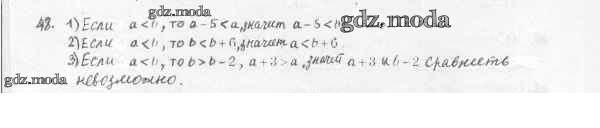 gdz.moda
48. 1) Если a < b, то a - 5 < a, значит a - 5 < b gdz.moda
2) Если a < b, то b < b + 6, значит a < b + 6
3) Если a < b, то b > b - 2, a + 3 > a, значит a + 3 и b - 2 сравнить
gdz.moda невозможно.